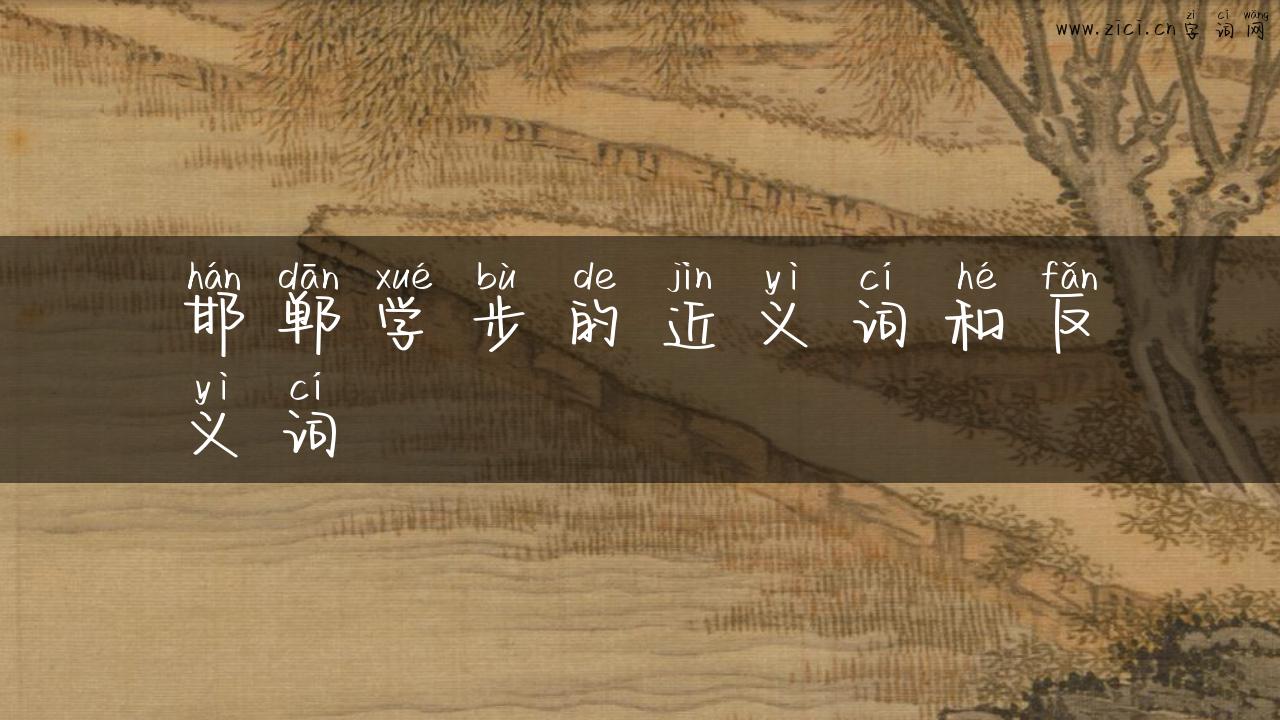 zì cí wǎng
www.zici.cn字词网
hán dān xué bù de jìn yì cí hé fǎn
邯郸学步的近义词和反
yì cí
义词